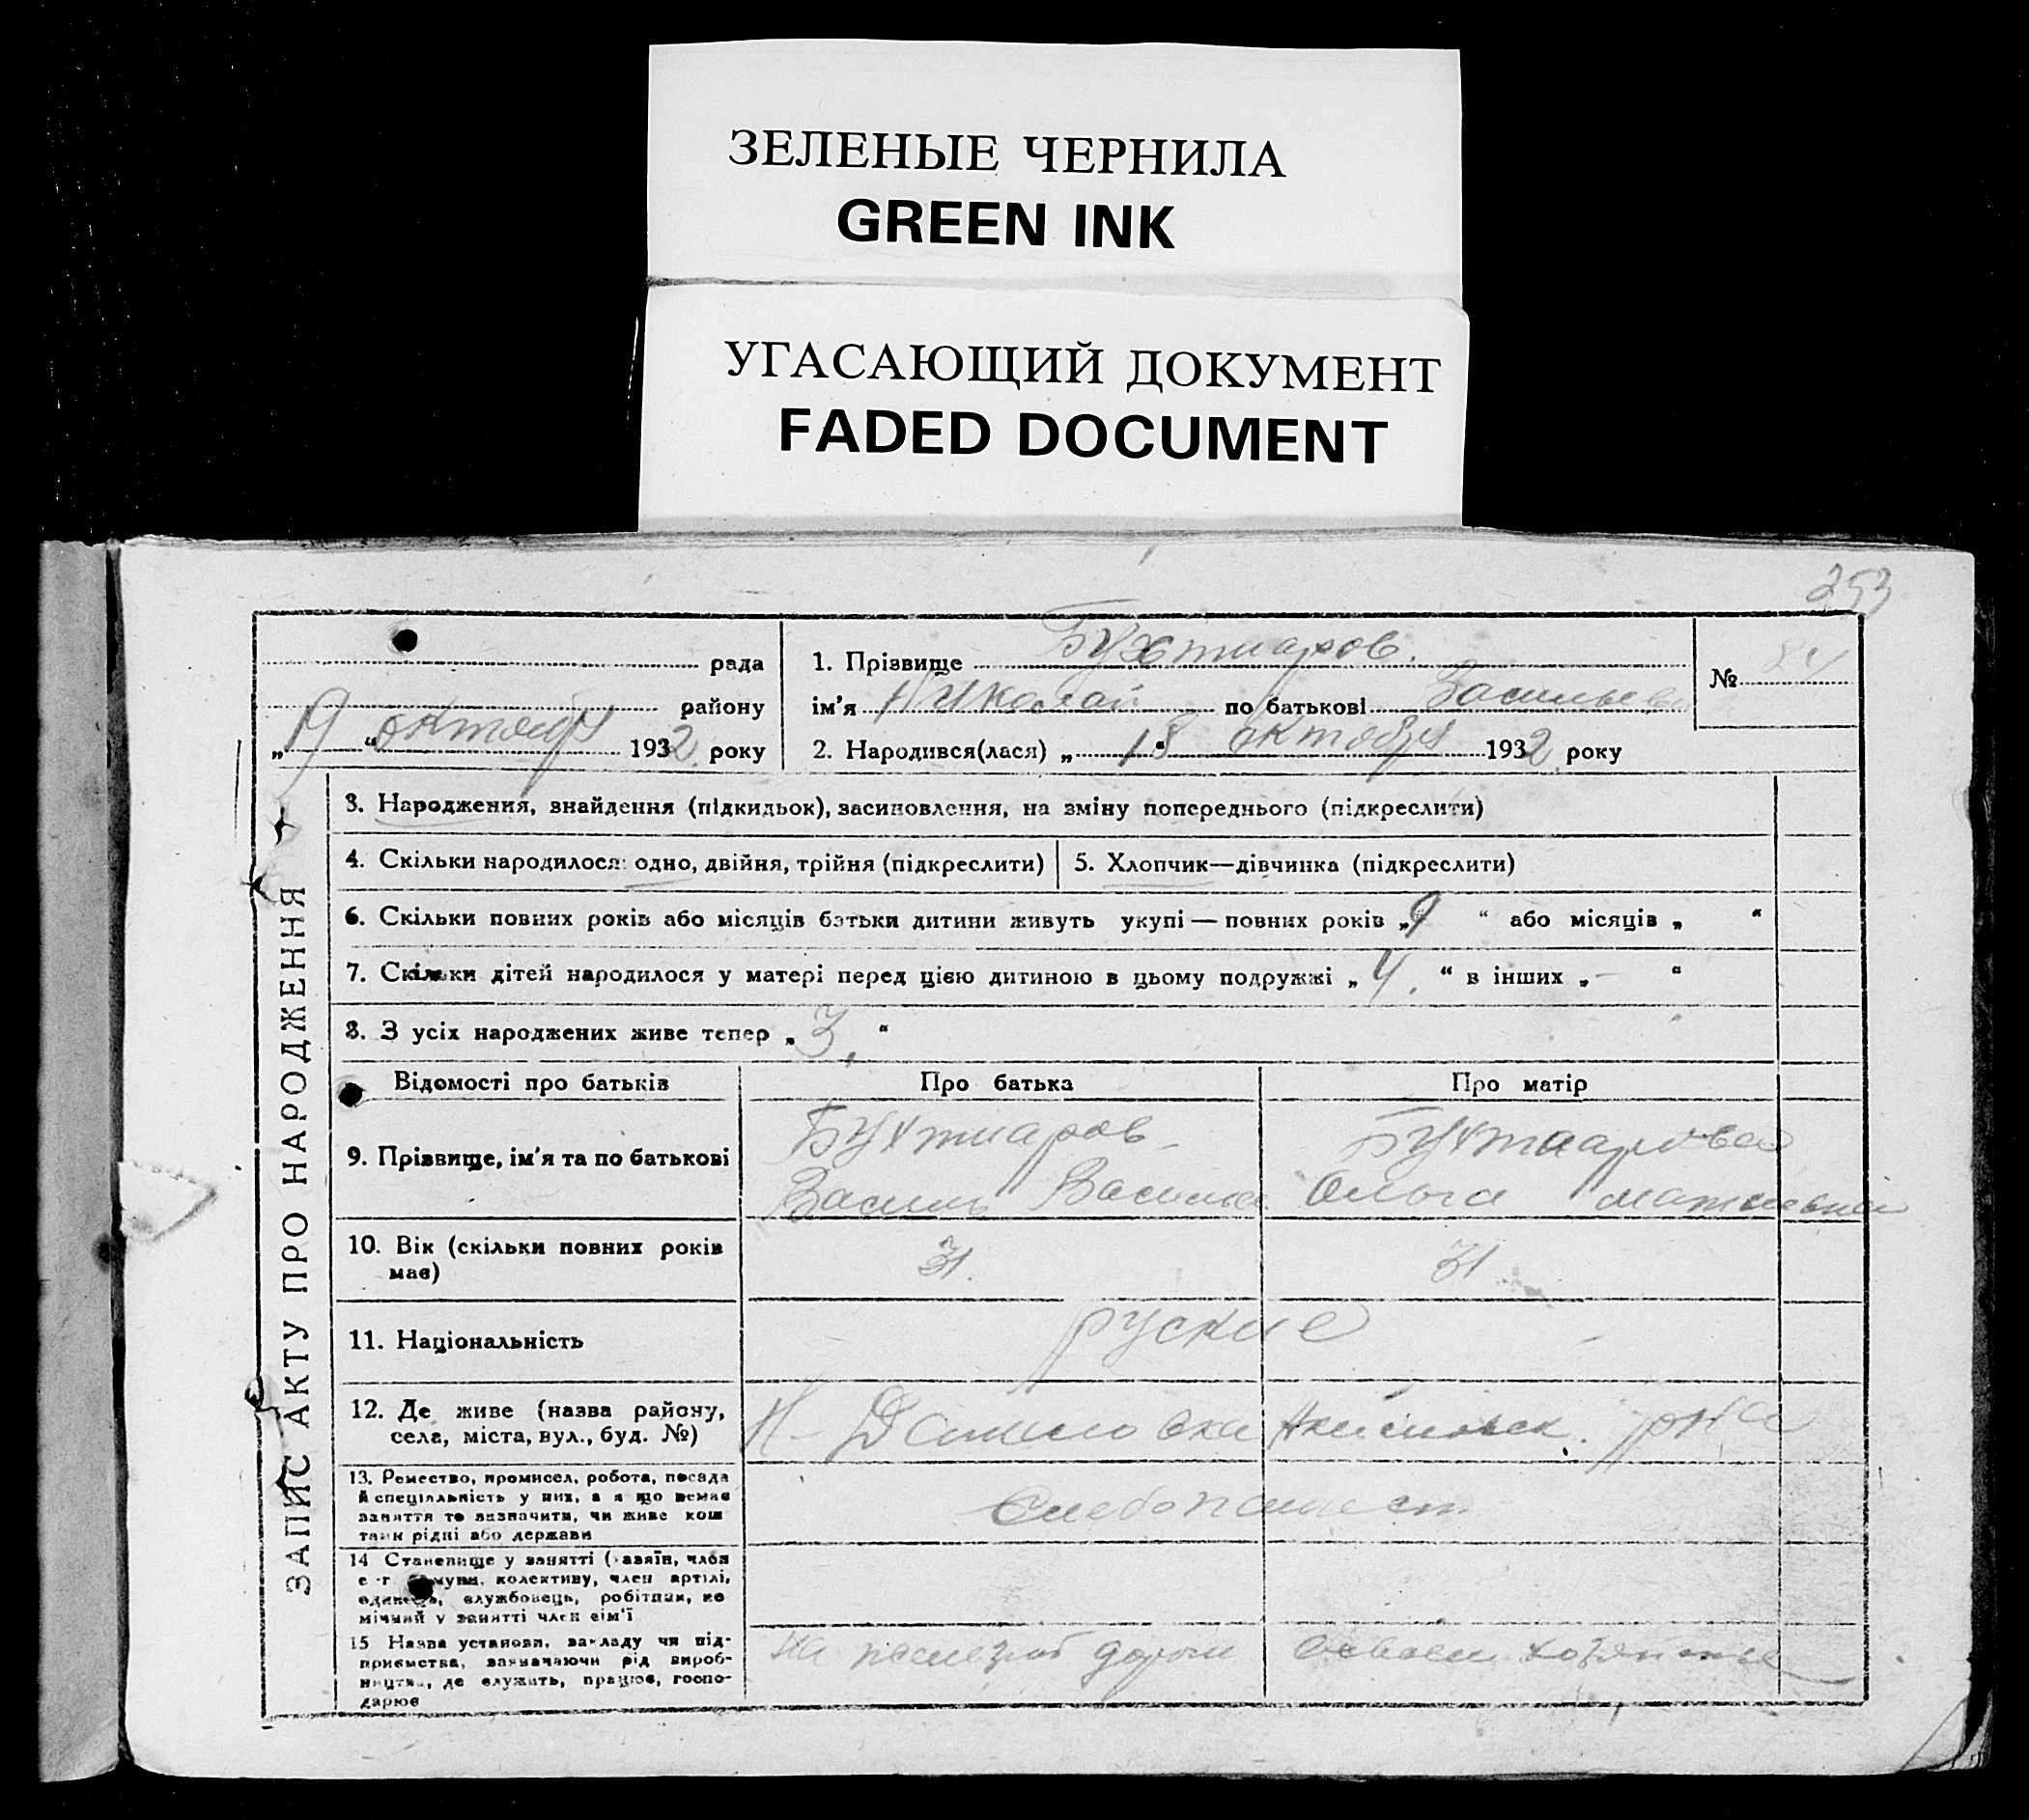 ЗЕЛЕНЫЕ ЧЕРНИЛА
GREEN INK
УГАСАЮЩИЙ ДОКУМЕНТ
FADED DOCUMENT
253
рада
району
„19“ октября 1932 року
1. Прізвище Бухтиаров.
ім'я Николай по батькові Васильев
2. Народився(лася) „18 октября 1932 року
№ 24
ЗАПИС АКТУ ПРО НАРОДЖЕННЯ
3. Народження, знайдення (підкидьок), засиновлення, на зміну попереднього (підкреслити)
4. Скільки народилося: одно, двійня, трійня (підкреслити) 5. Хлопчик—дівчинка (підкреслити)
6. Скільки повних років або місяців батьки дитини живуть укупі — повних років „9 “ або місяців „ “
7. Скільки дітей народилося у матері перед цією дитиною в цьому подружжі „4.“ в інших „— “
8. З усіх народжених живе тепер „3.“
Відомості про батьків Про батька Про матір
9. Прізвище, ім'я та по батькові
Бухтиаров Бухтиарова
Василь Василье Ольга
10. Вік (скільки повних років має)
31. 31
11. Національність
руские
12. Де живе (назва району, села, міста, вул., буд. №)
Н-Даниловка р-на
13. Ремество, промисел, робота, посада й спеціяльність у них, а якщо немає заняття то визначити, чи живе кош тами рідні або держави
14 Становище у занятті (хазяїн, член с-г. комуни, колективу, член артілі, одинець, службовець, робітник, по мічний у занятті член сім'ї
15 Назва установи, закладу чи підприємства, зазначаючи рід виробництва, де служить, працює, господарює
На дороги